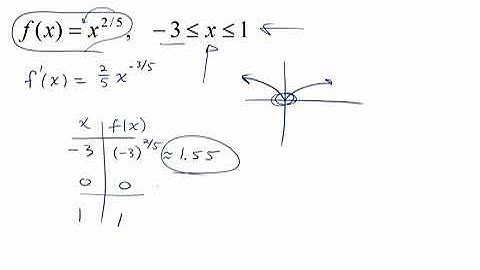 f(x) = x^{2/5}, -3 ≤ x ≤ 1
f'(x) = 2/5 x^{-3/5}
x f(x)
-3 (-3)^{2/5} ≈ 1.55
0 0
1 1